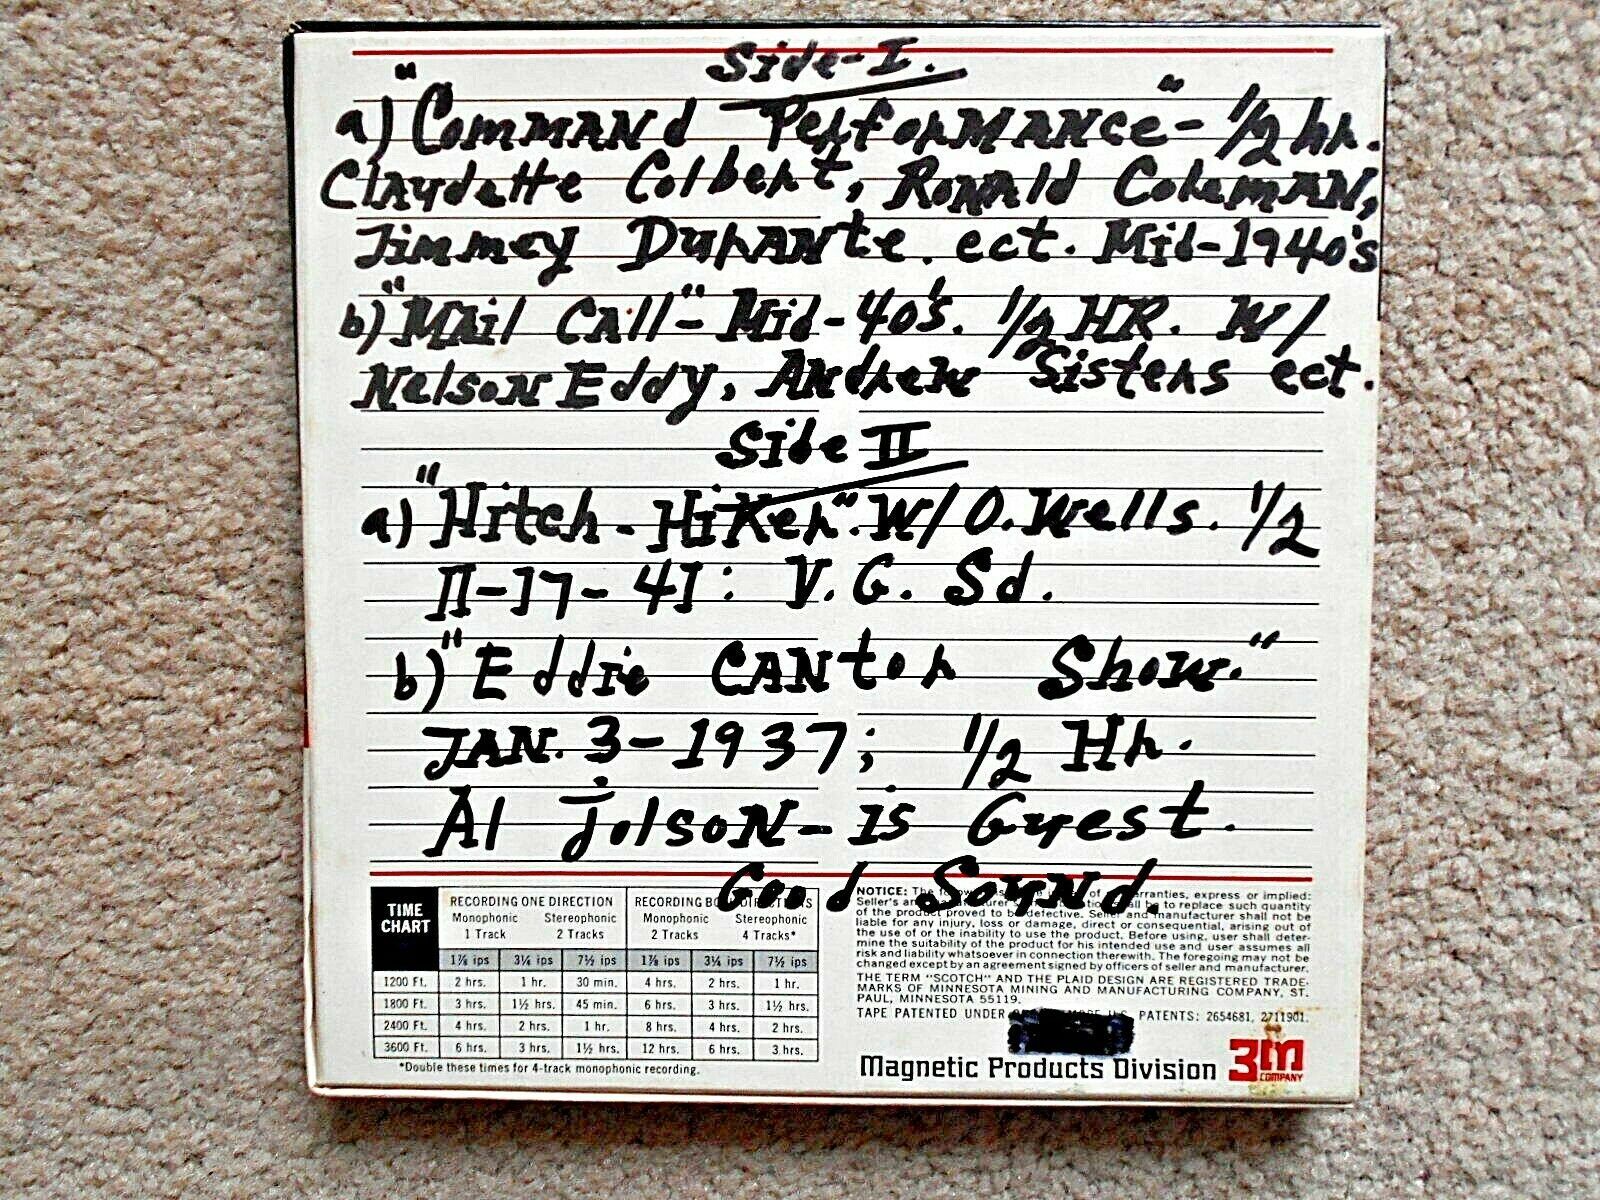 Side-I.
a) "Command Performance" - 1/2 hr.
Claudette Colbert, Ronald Coleman,
Jimmey Durante. ect. Mid-1940's
b) "Mail Call" - Mid-40's. 1/2 HR. W/
Nelson Eddy, Andrew Sisters ect.
Side II
a) "Hitch-Hiker". W/O. Wells. 1/2
II-17-41: V.G. Sd.
b) "Eddie Cantor Show."
JAN. 3-1937; 1/2 Hr.
Al Jolson - is Guest.
Good Sound.
TIME CHART
RECORDING ONE DIRECTION
Monophonic 1 Track
Stereophonic 2 Tracks
RECORDING BOTH DIRECTIONS
Monophonic 2 Tracks
Stereophonic 4 Tracks*
1⅞ ips 3¾ ips 7½ ips 1⅞ ips 3¾ ips 7½ ips
1200 Ft. 2 hrs. 1 hr. 30 min. 4 hrs. 2 hrs. 1 hr.
1800 Ft. 3 hrs. 1½ hrs. 45 min. 6 hrs. 3 hrs. 1½ hrs.
2400 Ft. 4 hrs. 2 hrs. 1 hr. 8 hrs. 4 hrs. 2 hrs.
3600 Ft. 6 hrs. 3 hrs. 1½ hrs. 12 hrs. 6 hrs. 3 hrs.
*Double these times for 4-track monophonic recording.
NOTICE: The of warranties, express or implied:
Seller's and shall be to replace such quantity
of the product proved to be defective. Seller and manufacturer shall not be
liable for any injury, loss or damage, direct or consequential, arising out of
the use of or the inability to use the product. Before using, user shall deter-
mine the suitability of the product for his intended use and user assumes all
risk and liability whatsoever in connection therewith. The foregoing may not be
changed except by an agreement signed by officers of seller and manufacturer.
THE TERM "SCOTCH" AND THE PLAID DESIGN ARE REGISTERED TRADE-
MARKS OF MINNESOTA MINING AND MANUFACTURING COMPANY, ST.
PAUL, MINNESOTA 55119.
TAPE PATENTED UNDER MORE U.S. PATENTS: 2654681, 2711901.
Magnetic Products Division 3M
COMPANY